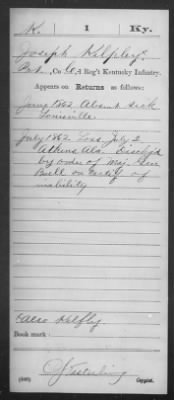 K. 1 Ky.
Joseph Kelpley
Pvt., Co. G, 1 Reg't Kentucky Infantry.
Appears on Returns as follows:
June 1862 Absent sick
Louisville.
July 1862 Loss July 2
Athens Ala. Disch'd
by order of Maj. Gen
Buell on certif of
inability
*also Kelfly
Book mark:
(546) Copyist.